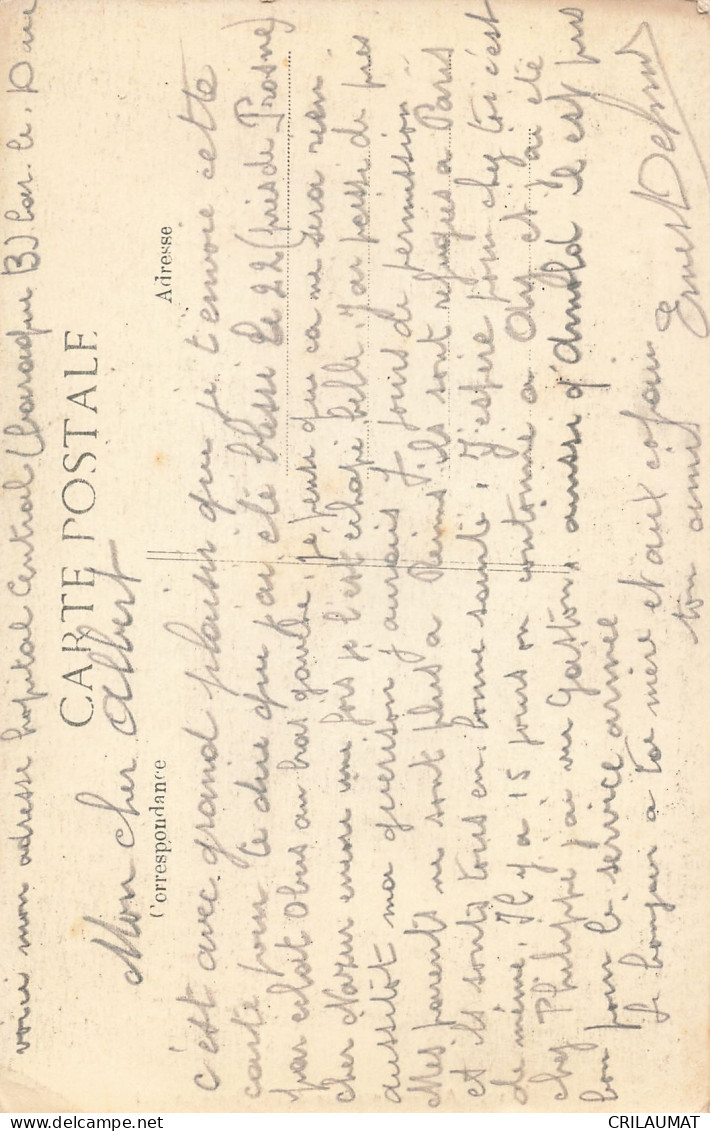 voici mon adresse hopital Central (baraque B) Bar. le. Duc
CARTE POSTALE
Correspondance
Adresse
Mon cher Albert
c'est avec grand plaisir que je t'envoie cette
carte pour te dire que j'ai été blessé le 22 (près de Prosne)
par eclat obus au bras gauche. je pense que ca ne sera rien
cher encore une fois je l'est echapé belle. J'ai passé de pres
aussitôt ma guerison j'aurais 7 jours de permission
Mes parents ne sont plus a Reims ils sont refugies a Paris
et ils sonts tous en bonne santé. J'espère pour chez toi c'est
de même. Il y a 15 jours on a Oiry et j'ai été
chez Philippe j'ai vu Gaston, aussi d'Arnold il est pas
bon pour le service armée
Le bonjour a ta mère et aux copain
ton amis
Ernest
delcampe.net
CRILAUMAT